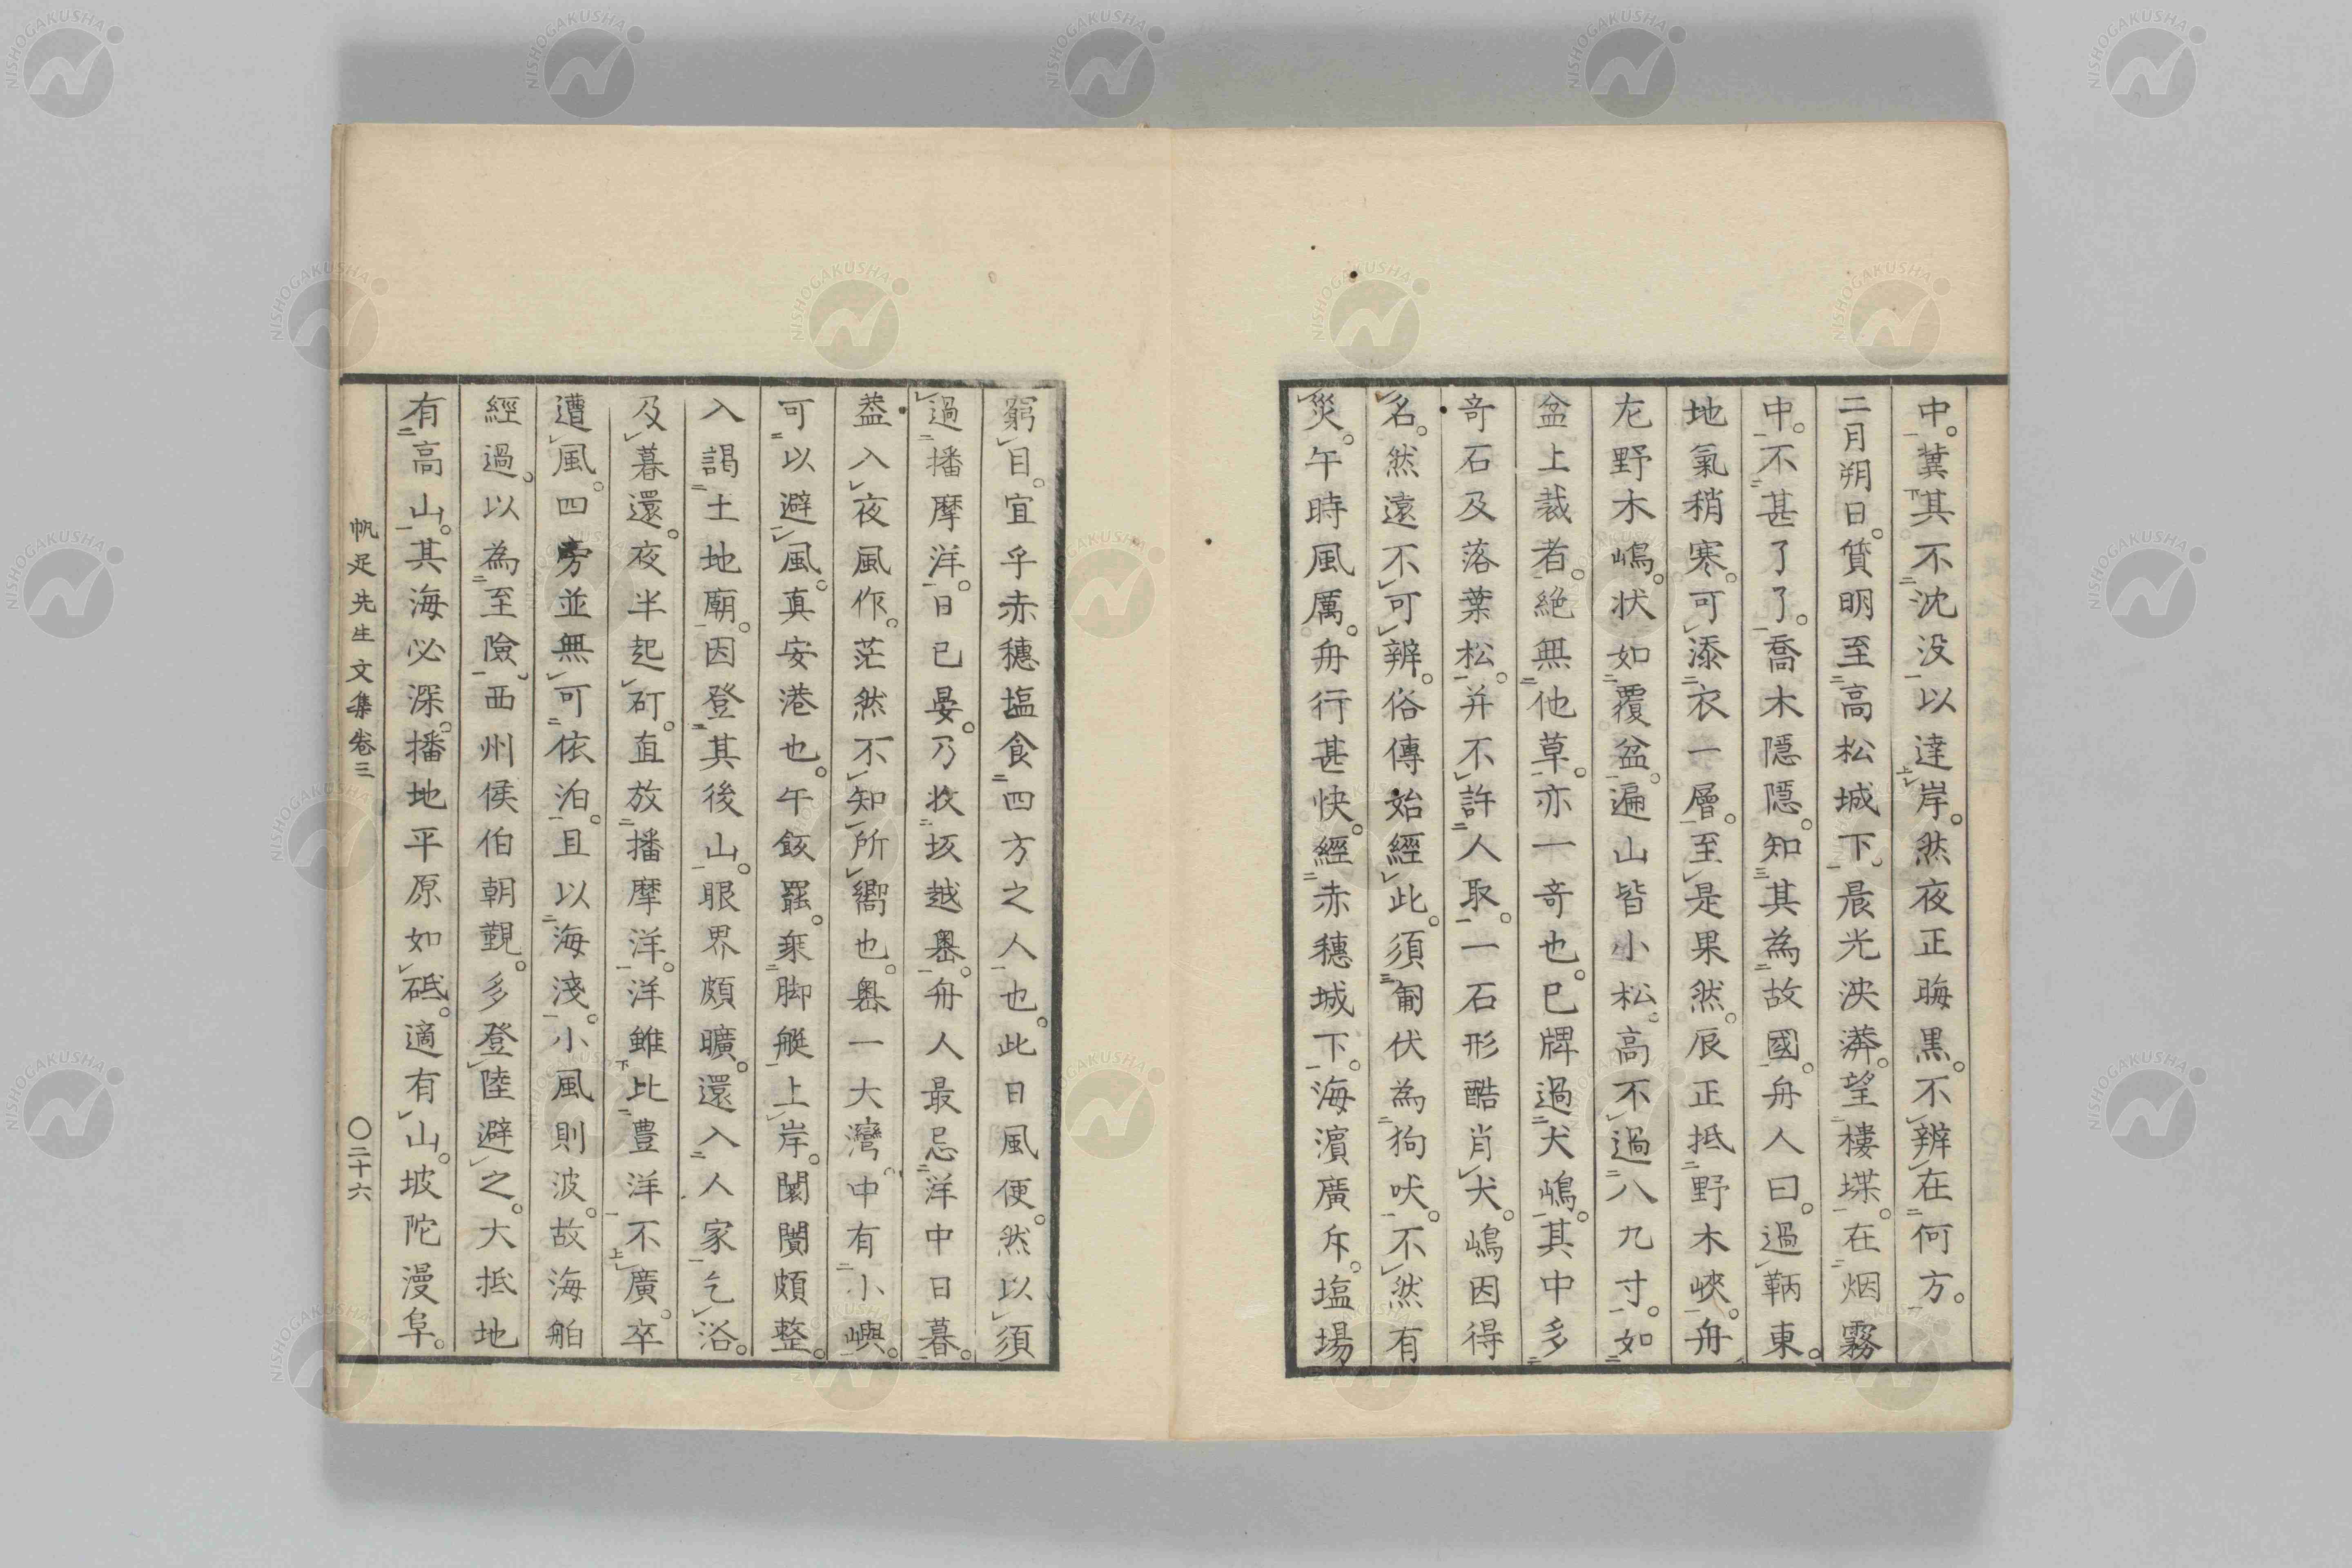 中。冀其不沈没以達岸。然夜正晦黒。不辨在何方。
二月朔日。質明至高松城下。晨光泱漭。望樓堞。在烟霧
中。不甚了了。喬木隱隱。知其為故國。舟人曰。過鞆東。
地氣稍寒。可添衣一層。至是果然。辰正抵野木峽。舟
左野木嶋。状如覆盆。遍山皆小松。高不過八九寸。如
盆上裁者。絶無他草。亦一竒也。巳牌過犬嶋。其中多
竒石及落葉松。并不許人取。一石形酷肖犬。嶋因得
名。然遠不可辨。俗傳始經此。須匍伏為狗吠。不然有
災。午時風厲。舟行甚快。經赤穗城下。海濵廣斥。塩場
窮目。宜乎赤穗塩食四方之人也。此日風便。然以須
過播摩洋。日已晏。乃收坂越嶴。舟人最忌洋中日暮。
葢入夜風作。茫然不知所嚮也。嶴一大灣。中有小嶼。
可以避風。真安港也。午飯罷。乘脚艇上岸。闤闠頗整。
入謁土地廟。因登其後山。眼界頗曠。還入人家乞浴。
及暮還。夜半起矴。直放播摩洋。洋雖比豊洋不廣。卒
遭風。四旁並無可依泊。且以海淺。小風則波。故海舶
經過。以為至險。西州侯伯朝覲。多登陸避之。大抵地
有高山。其海必深。播地平原如砥。適有山。坡陀漫阜。
帆足先生文集卷三 〇二十六
NISHOGAKUSHA